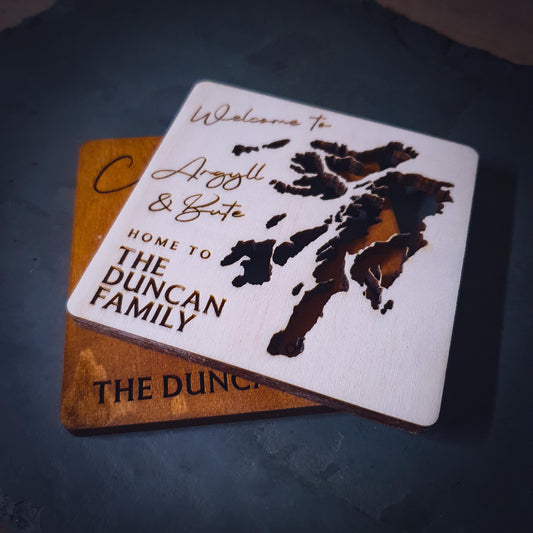 Welcome to
Argyll
& Bute
HOME TO
THE
DUNCAN
FAMILY
THE DUNC